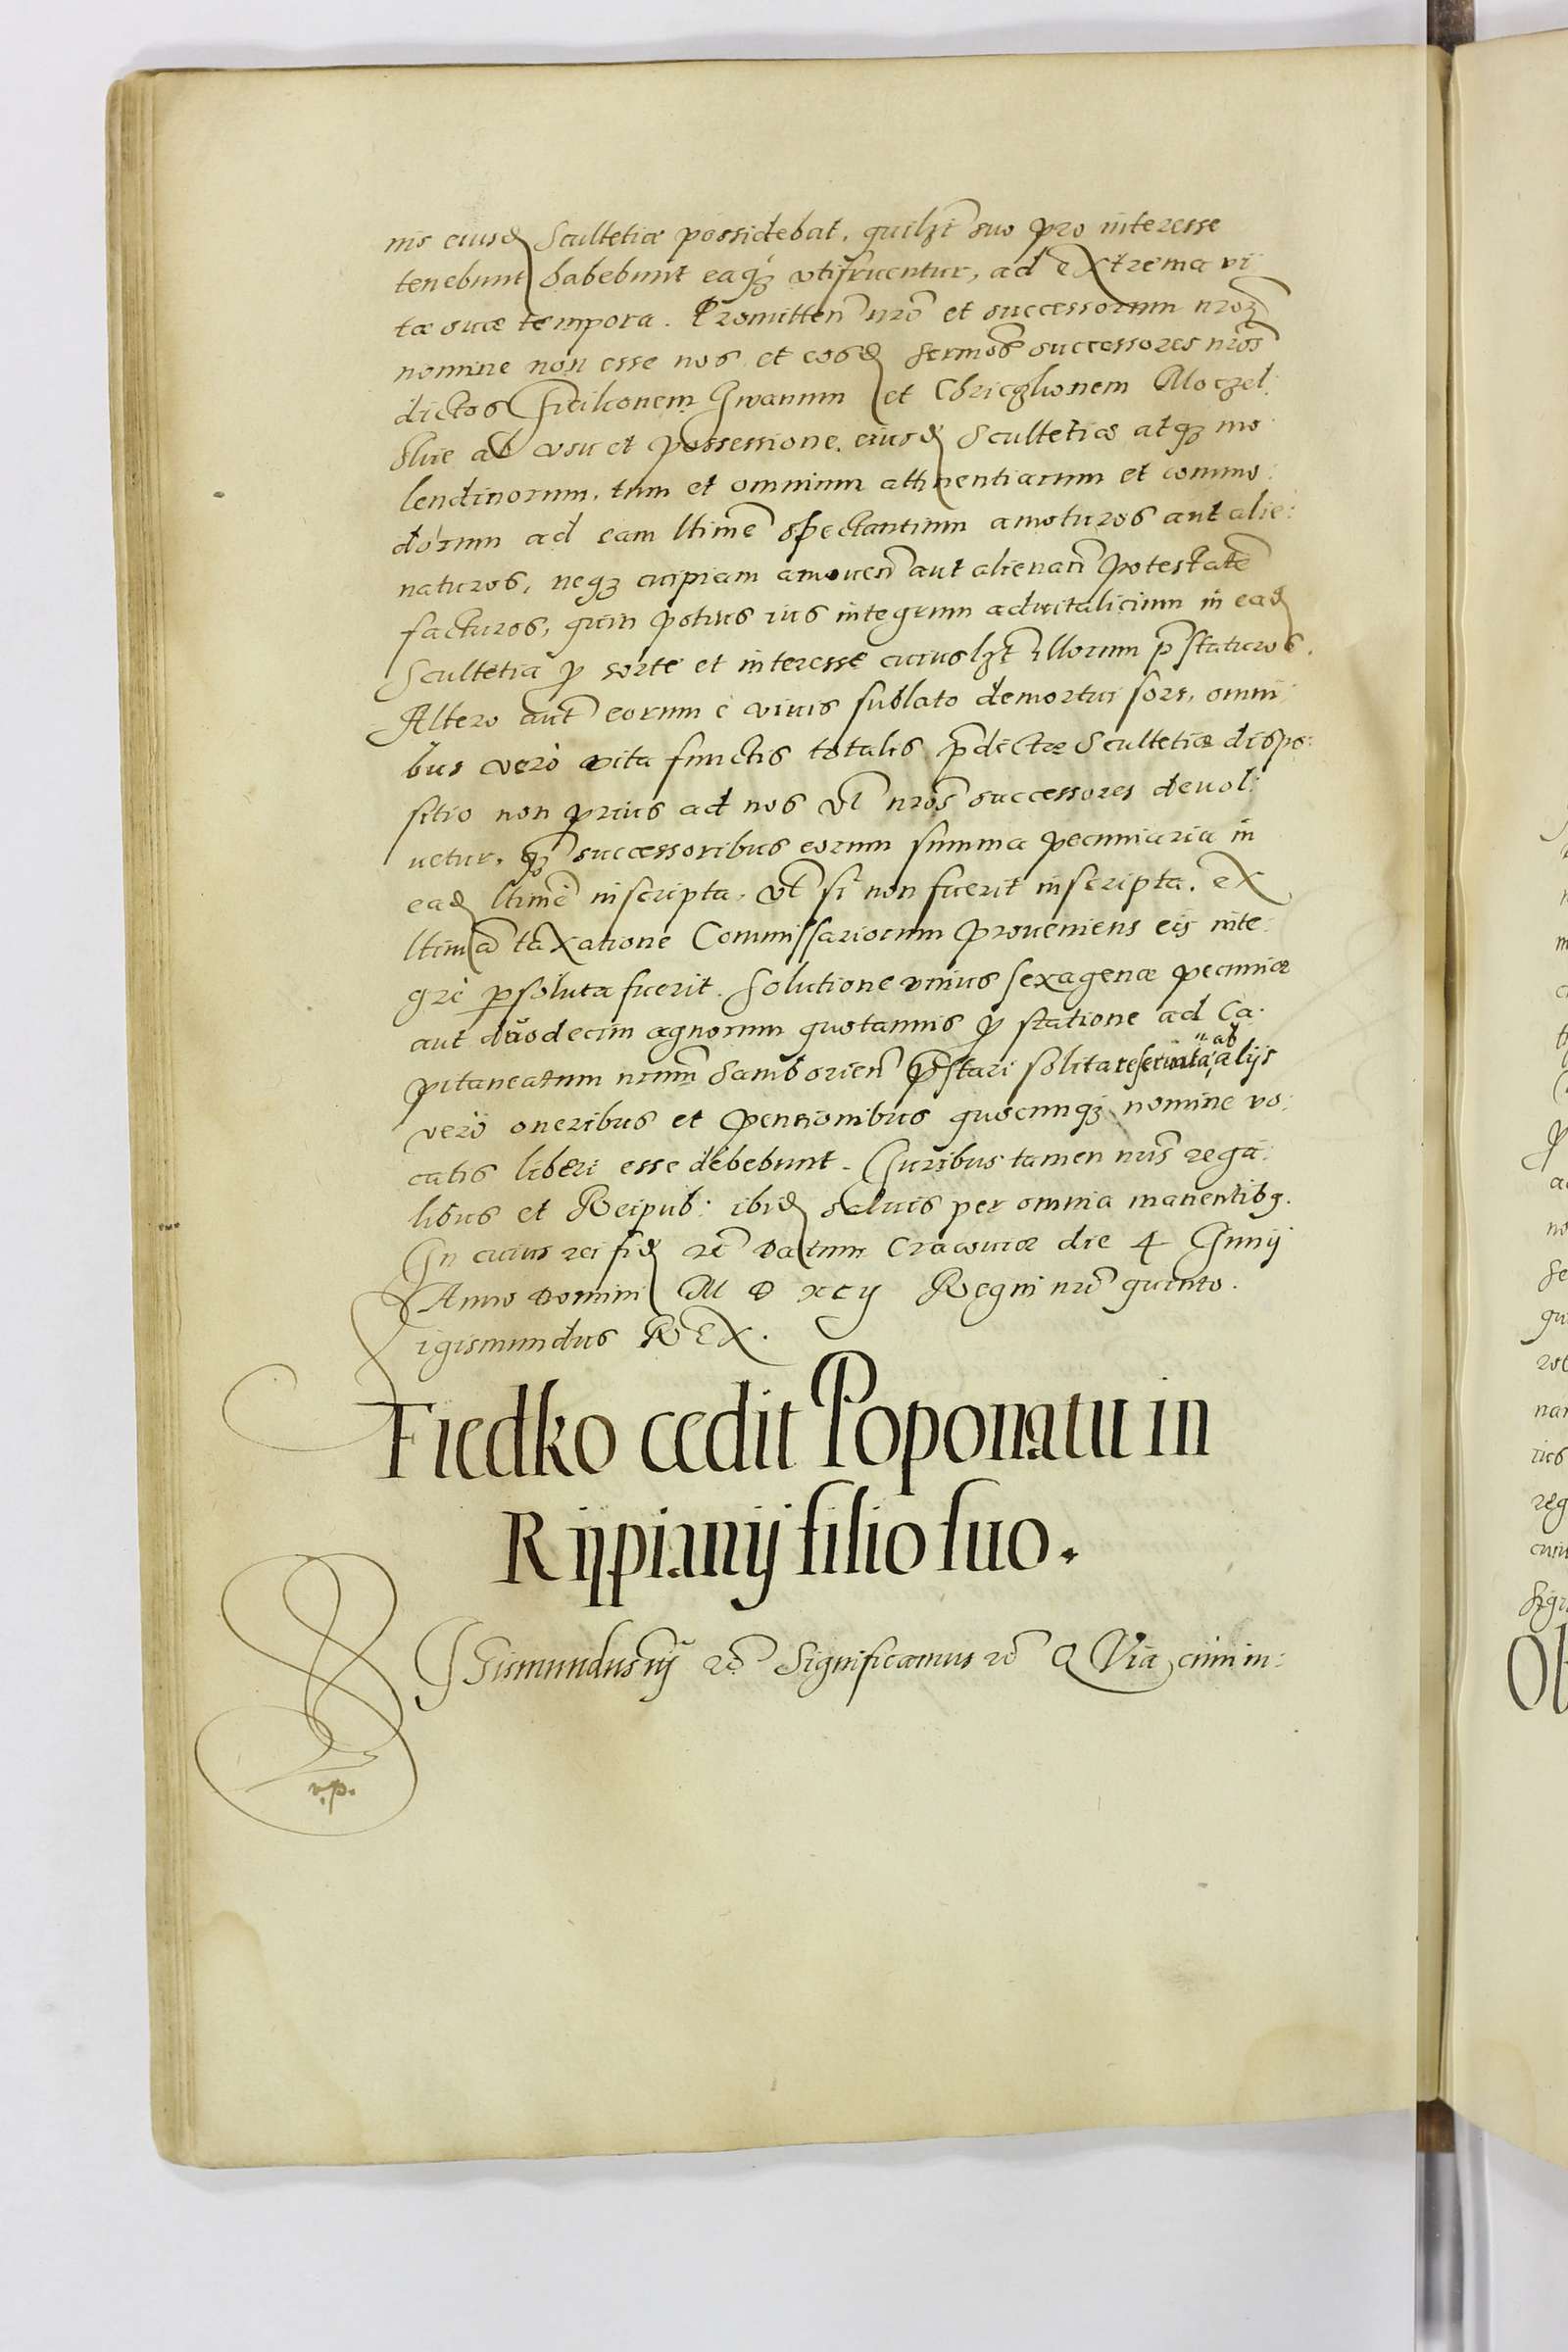 nis eiusd Scultetiæ possidebat, quilzt suo pro interesse
tenebunt habebunt eaqz utifruentur, ad extrema vi
tæ suæ tempora. Promitten nro et successorum nroz
nomine non esse nos et eosd sermos successores nros
dictos Iwanum et Moczel:
skie ab usu et possessione eiusd Scultetiæ atqz mo
lendinorum, tum et omnium attinentiarum et commo:
dorum ad eam ltime spectantium amoturos aut alie:
naturos, neqz cuipiam amouen aut alienan potestate
facturos, quin potius ius integrum aduitalicium in ead
Scultetia p sorte et interesse cuiuslzt illorum pstaturos.
Altero aut eorum è viuis sublato demortui sors, omni
bus verò vita functis totalis pdictæ Scultetiæ dispo:
sitio non prius ad nos vl nros successores devol:
uetur, qz successoribus eorum summa pecuniaria in
ead ltime inscripta, vl si non fuerit inscripta, ex
ltima taxatione Commissariorum proueniens eis inte:
grè psoluta fuerit. Solutione unius sexagenæ pecuniæ
aut duodecim agnorum quotannis p statione ad Ca:
pitaneatum nrum Samborien pstari solita reseruata, ab alijs
verò oneribus et pensionibus quocunqz nomine vo:
catis liberi esse debebunt. Iuribus tamen nris rega:
libus et Reipub: ibid saluis per omnia manentibz.
In cuius rei fid rc Datum Cracouiæ die 4 Iunij
Anno Domini M D xcij Regni nri quinto.
Sigismundus REX.
Fiedko cedit Poponatu in
Rijpianij filio suo.
SIGismundus iij rc Significamus rc Q Via cum in:
v.p.